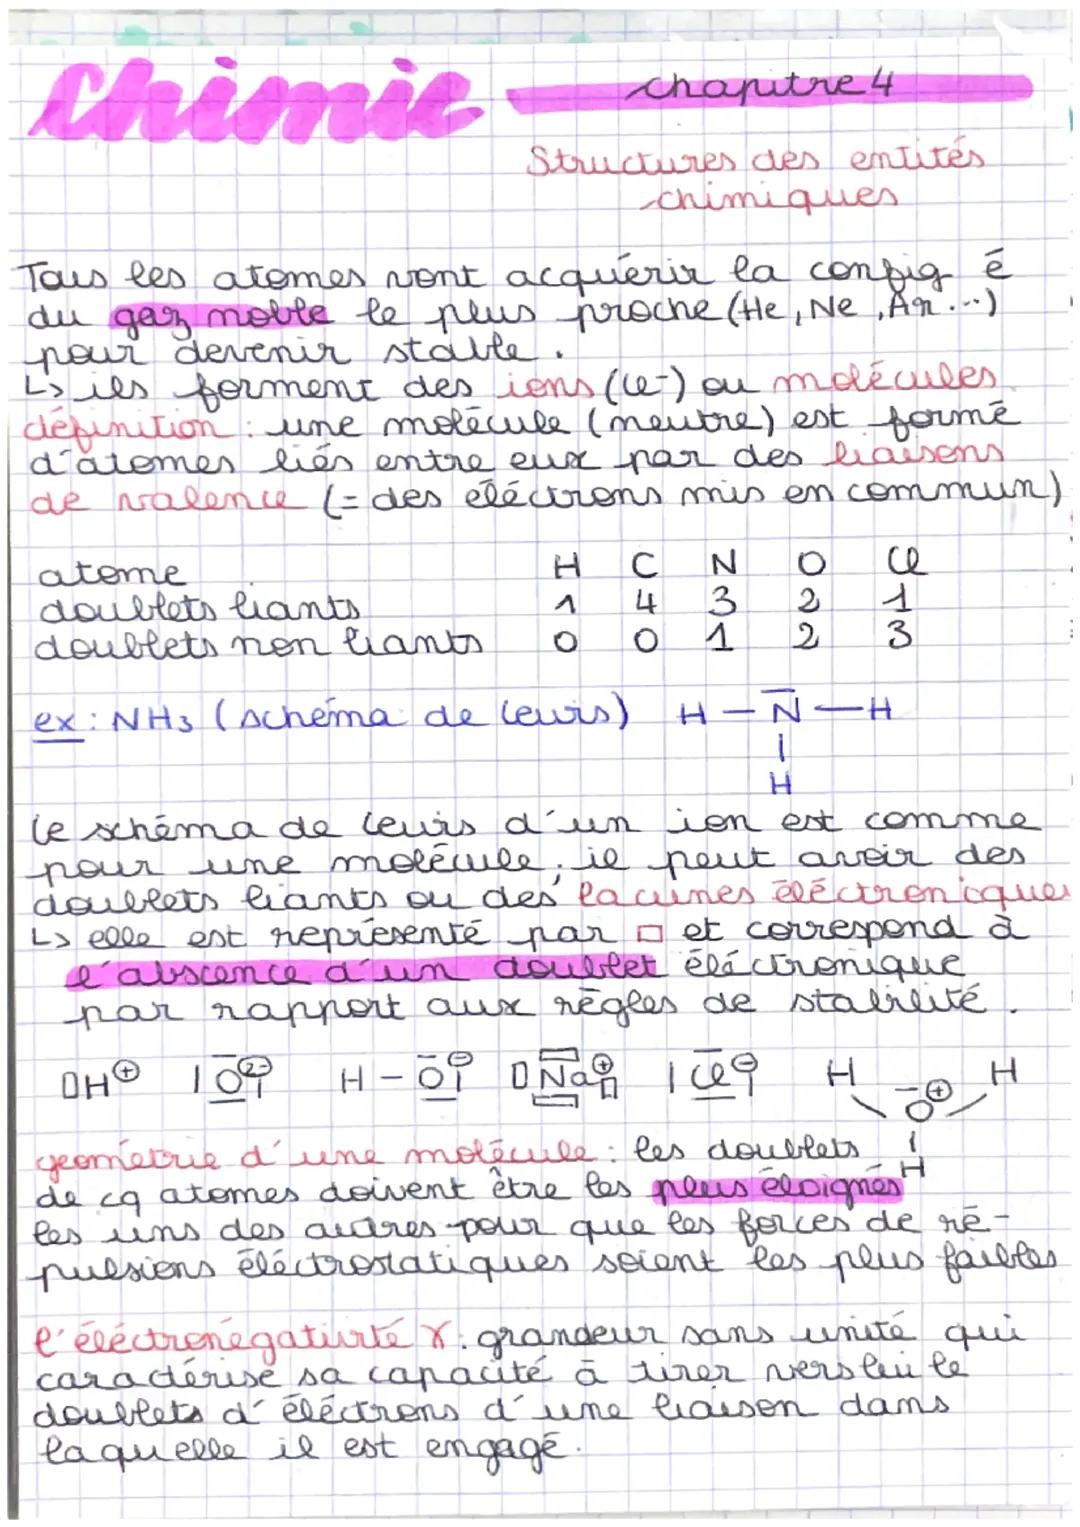 Chimie chapitre 4
Structures des entités
chimiques
Tous les atomes vont acquérir la config é
du gaz noble le plus proche (He, Ne, Ar...)
pour devenir stable.
↳ ils forment des ions (Cl-) ou molécules.
définition : une molécule (neutre) est formé
d'atomes liés entre eux par des liaisons
de valence (= des électrons mis en commun)
atome H C N O Cl
doublets liants 1 4 3 2 1
doublets non liants 0 0 1 2 3
ex : NH3 (schéma de Lewis) H – N – H
|
H
Le schéma de Lewis d'un ion est comme
pour une molécule, il peut avoir des
doublets liants ou des lacunes électronicques
↳ elle est représenté par □ et correspond à
l'abscence d'un doublet éléctronique
par rapport aux règles de stabilité.
□H⊕ |O|2- H – O|⊖ □Na⊕□ |Cl|⊖ H O⊕ H
H
géométrie d'une molécule : les doublets
de cq atomes doivent être les plus éloignés
les uns des autres pour que les forces de ré-
pulsions éléctrostatiques soient les plus faibles
l'éléctronégativité χ : grandeur sans unité qui
caractérise sa capacité à tirer vers lui le
doublets d'éléctrons d'une liaison dans
laquelle il est engagé.